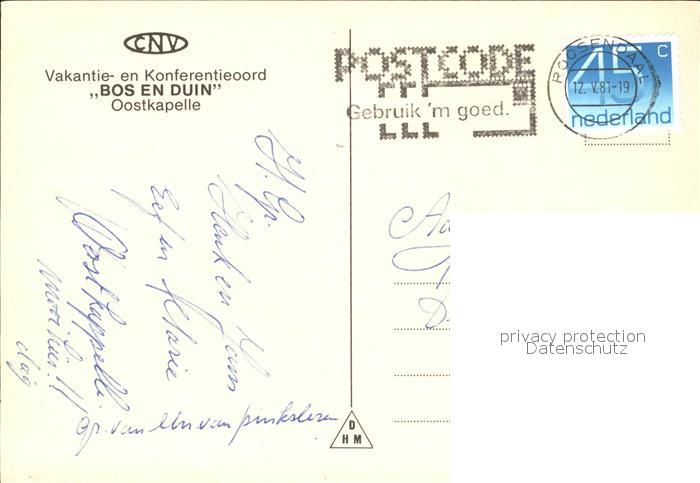 CNV
Vakantie- en Konferentieoord
„BOS EN DUIN”
Oostkapelle
POSTCODE
Gebruik 'm goed.
ROOSENDAAL
12. V.81-19
45 c
nederland
H. Gr.
Henk en
Eef en Marie
Oostkappelle
mooi huis!!
dag
gr. van
Aa
D
H M
privacy protection
Datenschutz